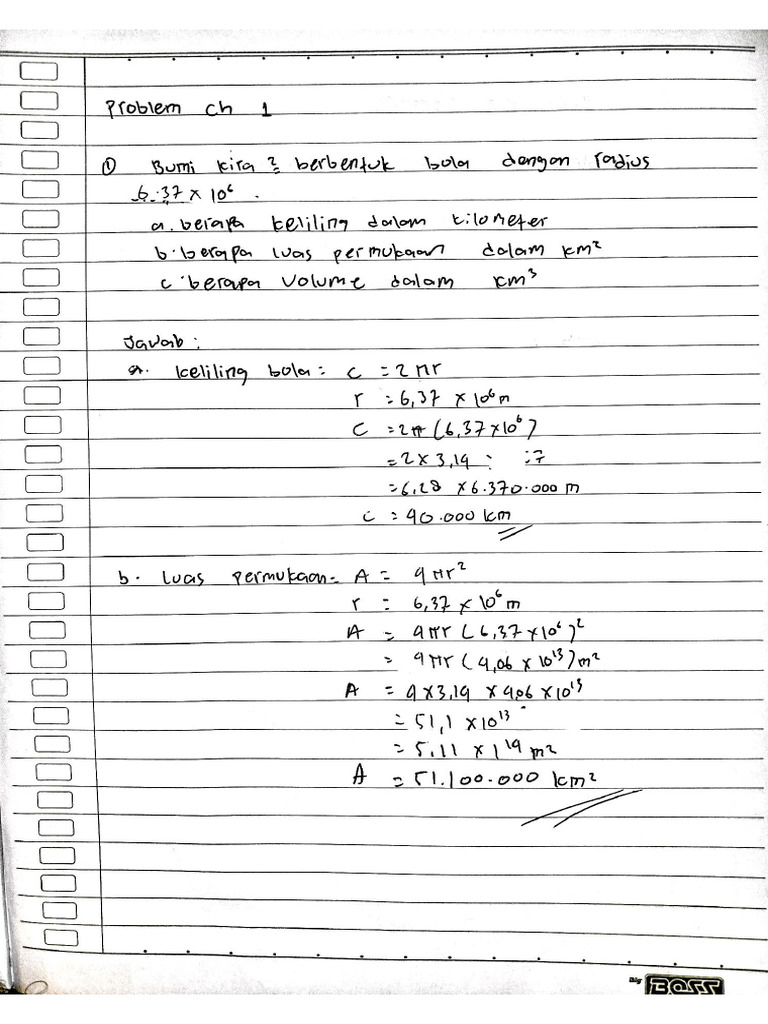 Problem Ch 1
① Bumi kira² berbentuk bola dengan radius
6.37 × 10⁶.
a. berapa keliling dalam kilometer
b. berapa luas permukaan dalam km²
c. berapa volume dalam km³
Jawab :
a. keliling bola = C = 2πr
r = 6,37 × 10⁶ m
C = 2π (6,37 × 10⁶)
= 2 × 3,14 : :7
= 6,28 × 6.370.000 m
C = 40.000 km
b. Luas permukaan = A = 4πr²
r = 6,37 × 10⁶ m
A = 4πr (6,37 × 10⁶)²
= 4πr (4,06 × 10¹³) m²
A = 4 × 3,14 × 4,06 × 10¹³
= 51,1 × 10¹³
= 5.11 × 1¹⁴ m²
A = 51.100.000 km²
BOSS